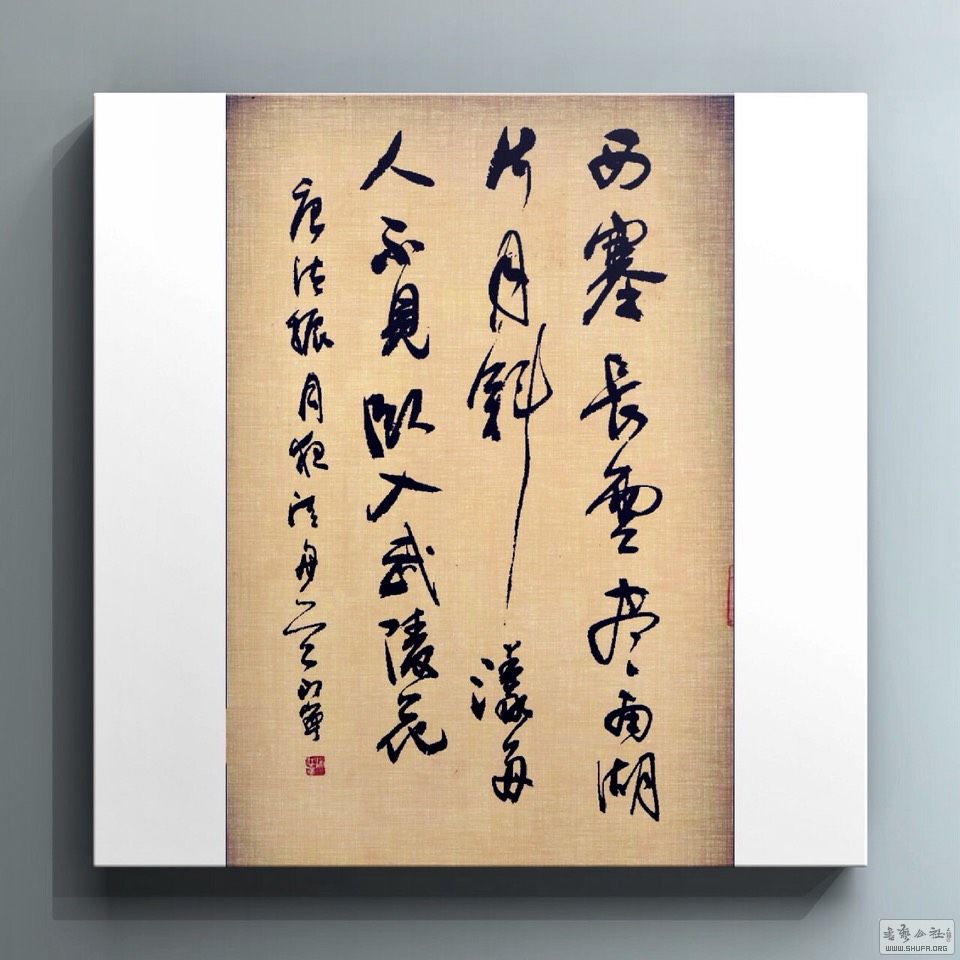 西塞長雲尽南湖
片月斜漾舟
人不見臥入武陵花
唐法振月夜泛舟 山華
书艺公社
WWW.SHUFA.ORG